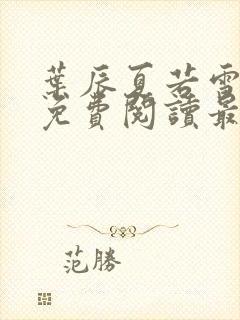 葉辰夏若雪
免費閱讀最
范勝